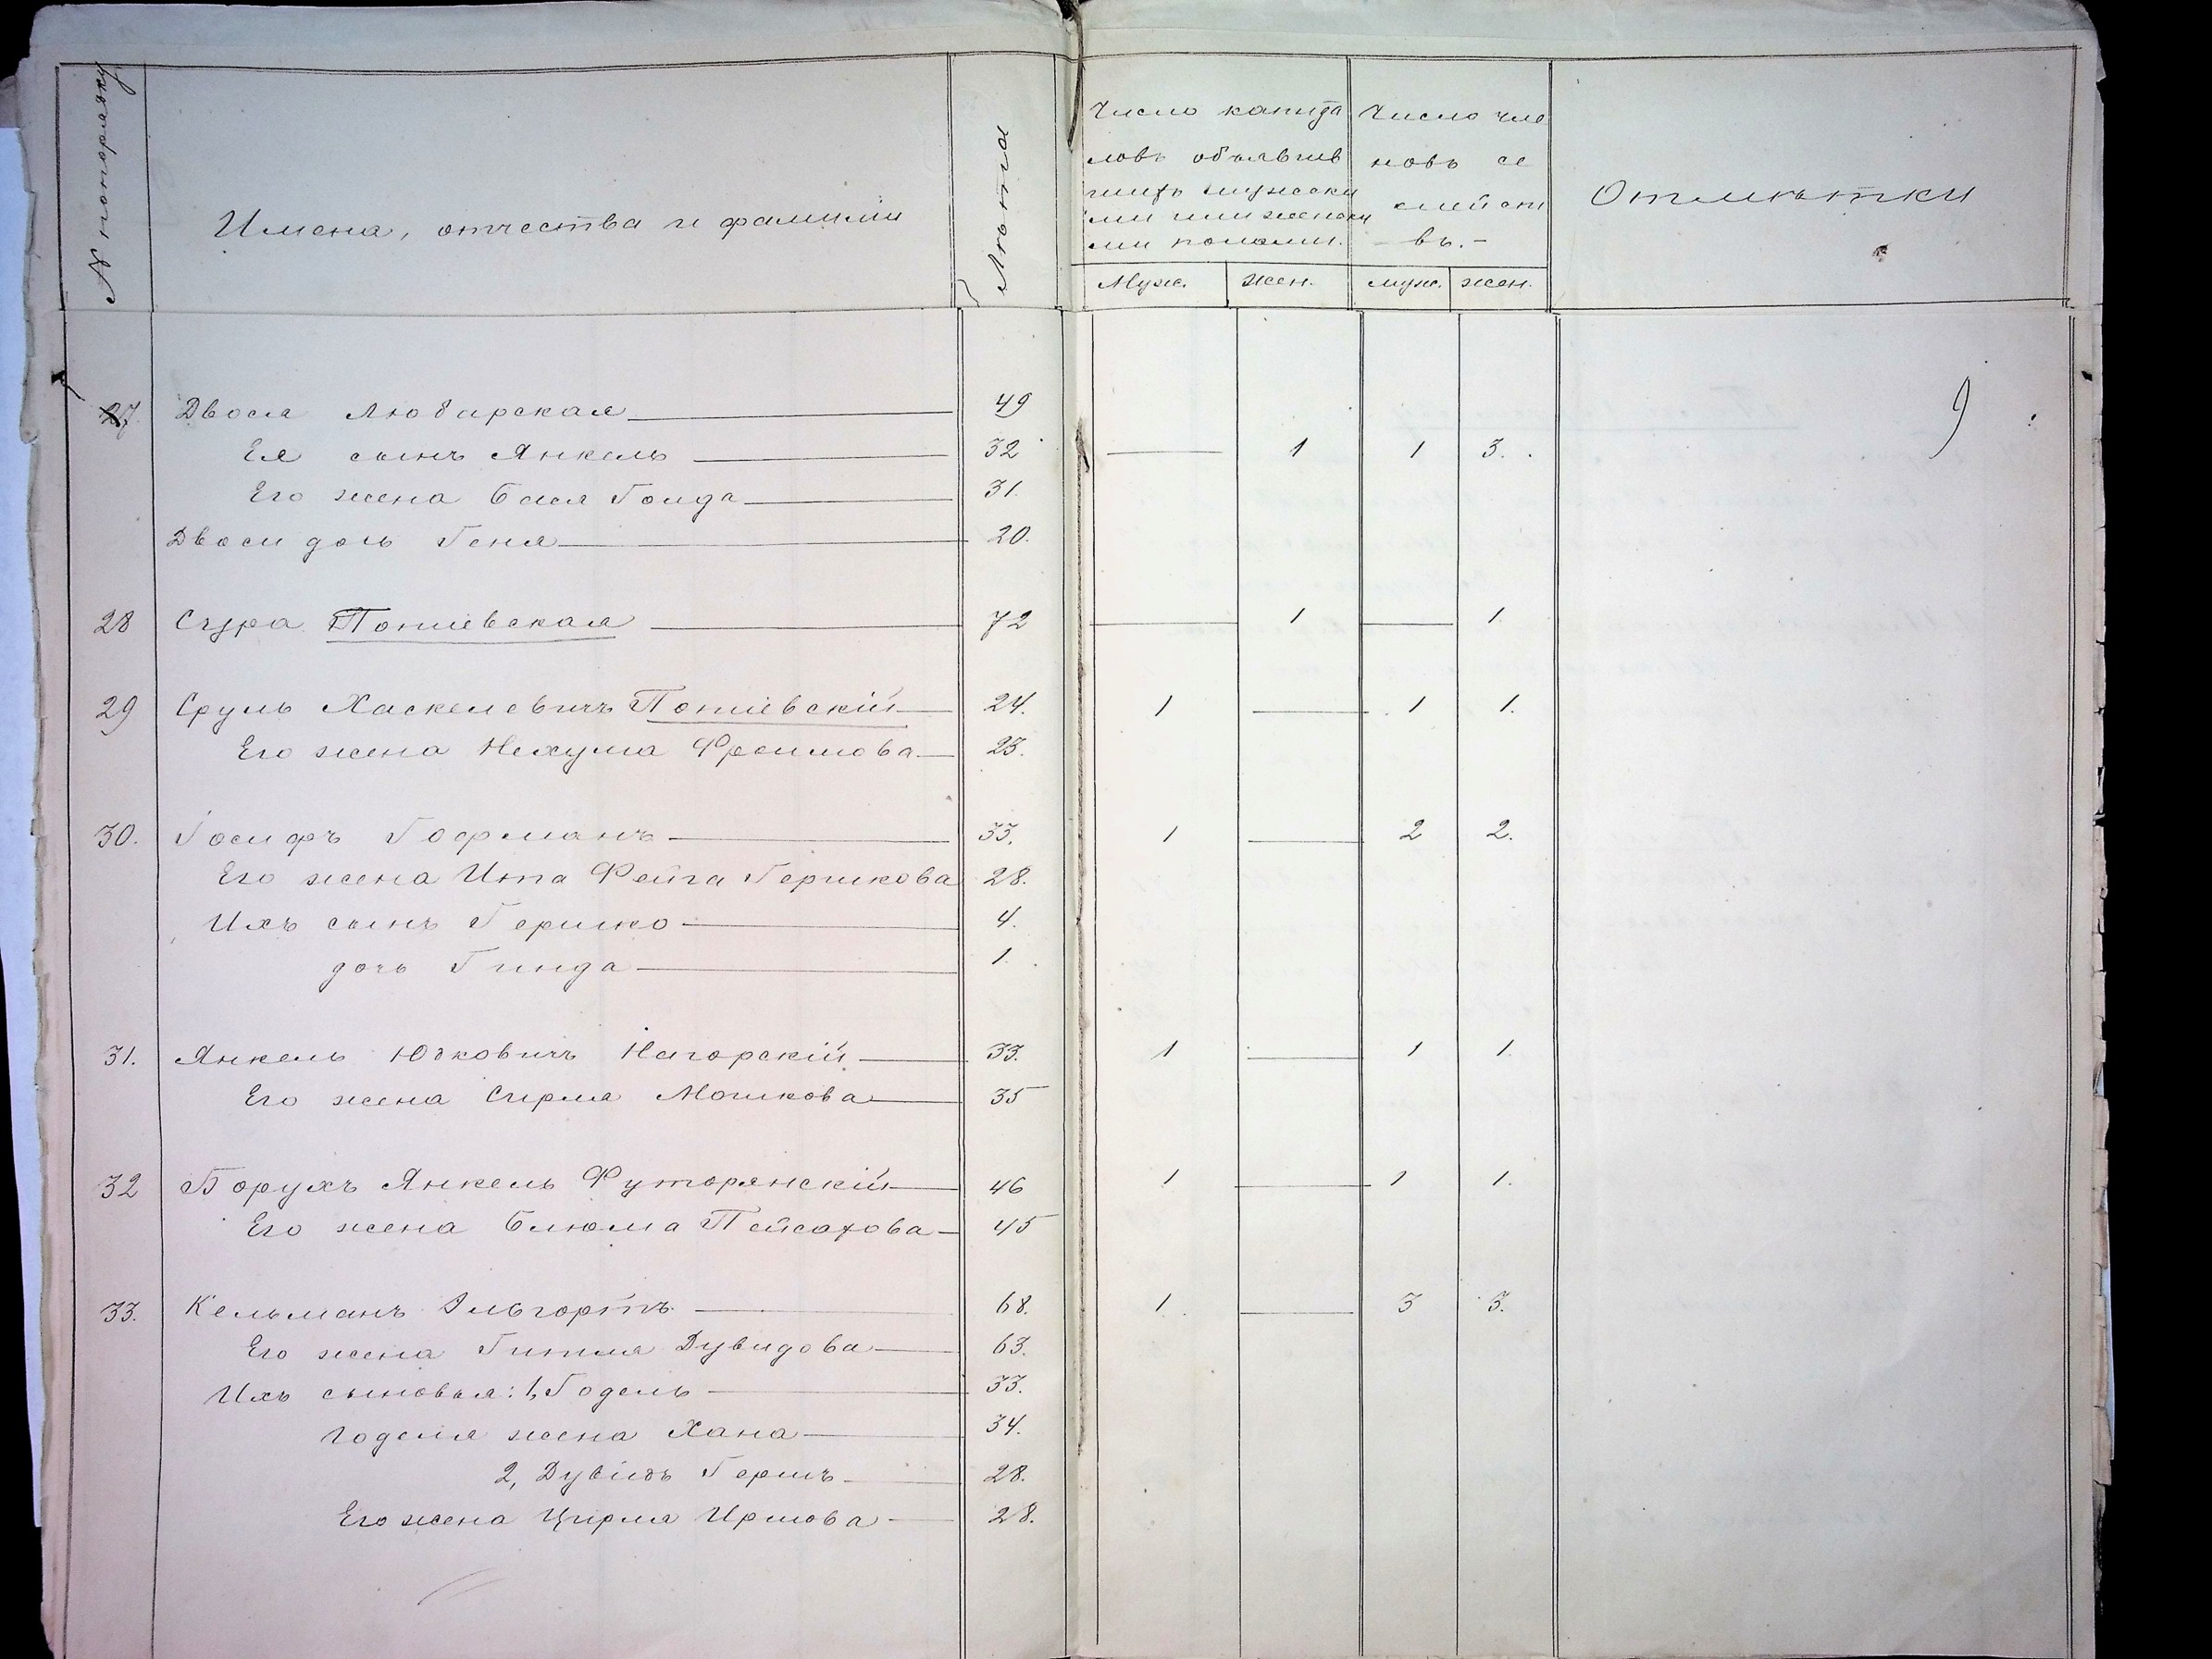 № по порядку
Имена, отчества и фамилии
Лѣта
Число капита
ловъ объявив
шихъ мужски
ми или женски
ми полами.
Муж. жен.
Число чле
новъ се
мейст
въ.-
муж. жен.
Отмѣтки
9
27 Двося Любарская 49
Ея сынъ Янкель 32 — 1 1 3.
Его жена Бася Голда 31.
Двоси дочь Геня 20.
28 Сура Потіевская 72 — 1 — 1.
29 Сруль Хаскелевичъ Потіевскій 24. 1 — 1 1.
Его жена Нехума Фроимова 23.
30. Іосифъ Гофманъ 33. 1 — 2 2.
Его жена Ита Фейга Гершкова 28.
Ихъ сынъ Гершко 4.
дочь Гинда 1.
31. Янкель Юдковичъ Нагорскій 33. 1 — 1 1.
Его жена Сирля Мошкова 35
32 Борухъ Янкель Футорянскій 46 1 — 1 1.
Его жена Блюма Пейсахова 45
33. Кельманъ Эльгортъ 68. 1. — 3 3.
Его жена Гитля Дувидова 63.
Ихъ сыновья: 1, Годель 33.
Годеля жена Хана 34.
2, Дувидъ Гершъ 28.
Его жена Цирля Ирмова 28.